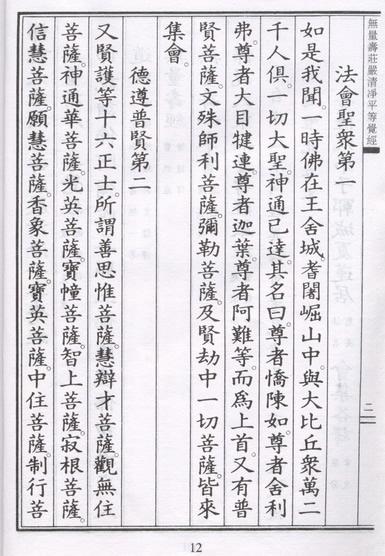 無量壽莊嚴清淨平等覺經
法會聖衆第一
如是我聞。一時佛在王舍城。耆闍崛山中。與大比丘衆萬二
千人俱。一切大聖。神通已達。其名曰尊者憍陳如。尊者舍利
弗。尊者大目犍連。尊者迦葉。尊者阿難等。而爲上首。又有普
賢菩薩。文殊師利菩薩。彌勒菩薩。及賢劫中一切菩薩。皆來
集會。
德遵普賢第二
又賢護等十六正士。所謂善思惟菩薩。慧辯才菩薩。觀無住
菩薩。神通華菩薩。光英菩薩。寶幢菩薩。智上菩薩。寂根菩薩。
信慧菩薩。願慧菩薩。香象菩薩。寶英菩薩。中住菩薩。制行菩
二
12